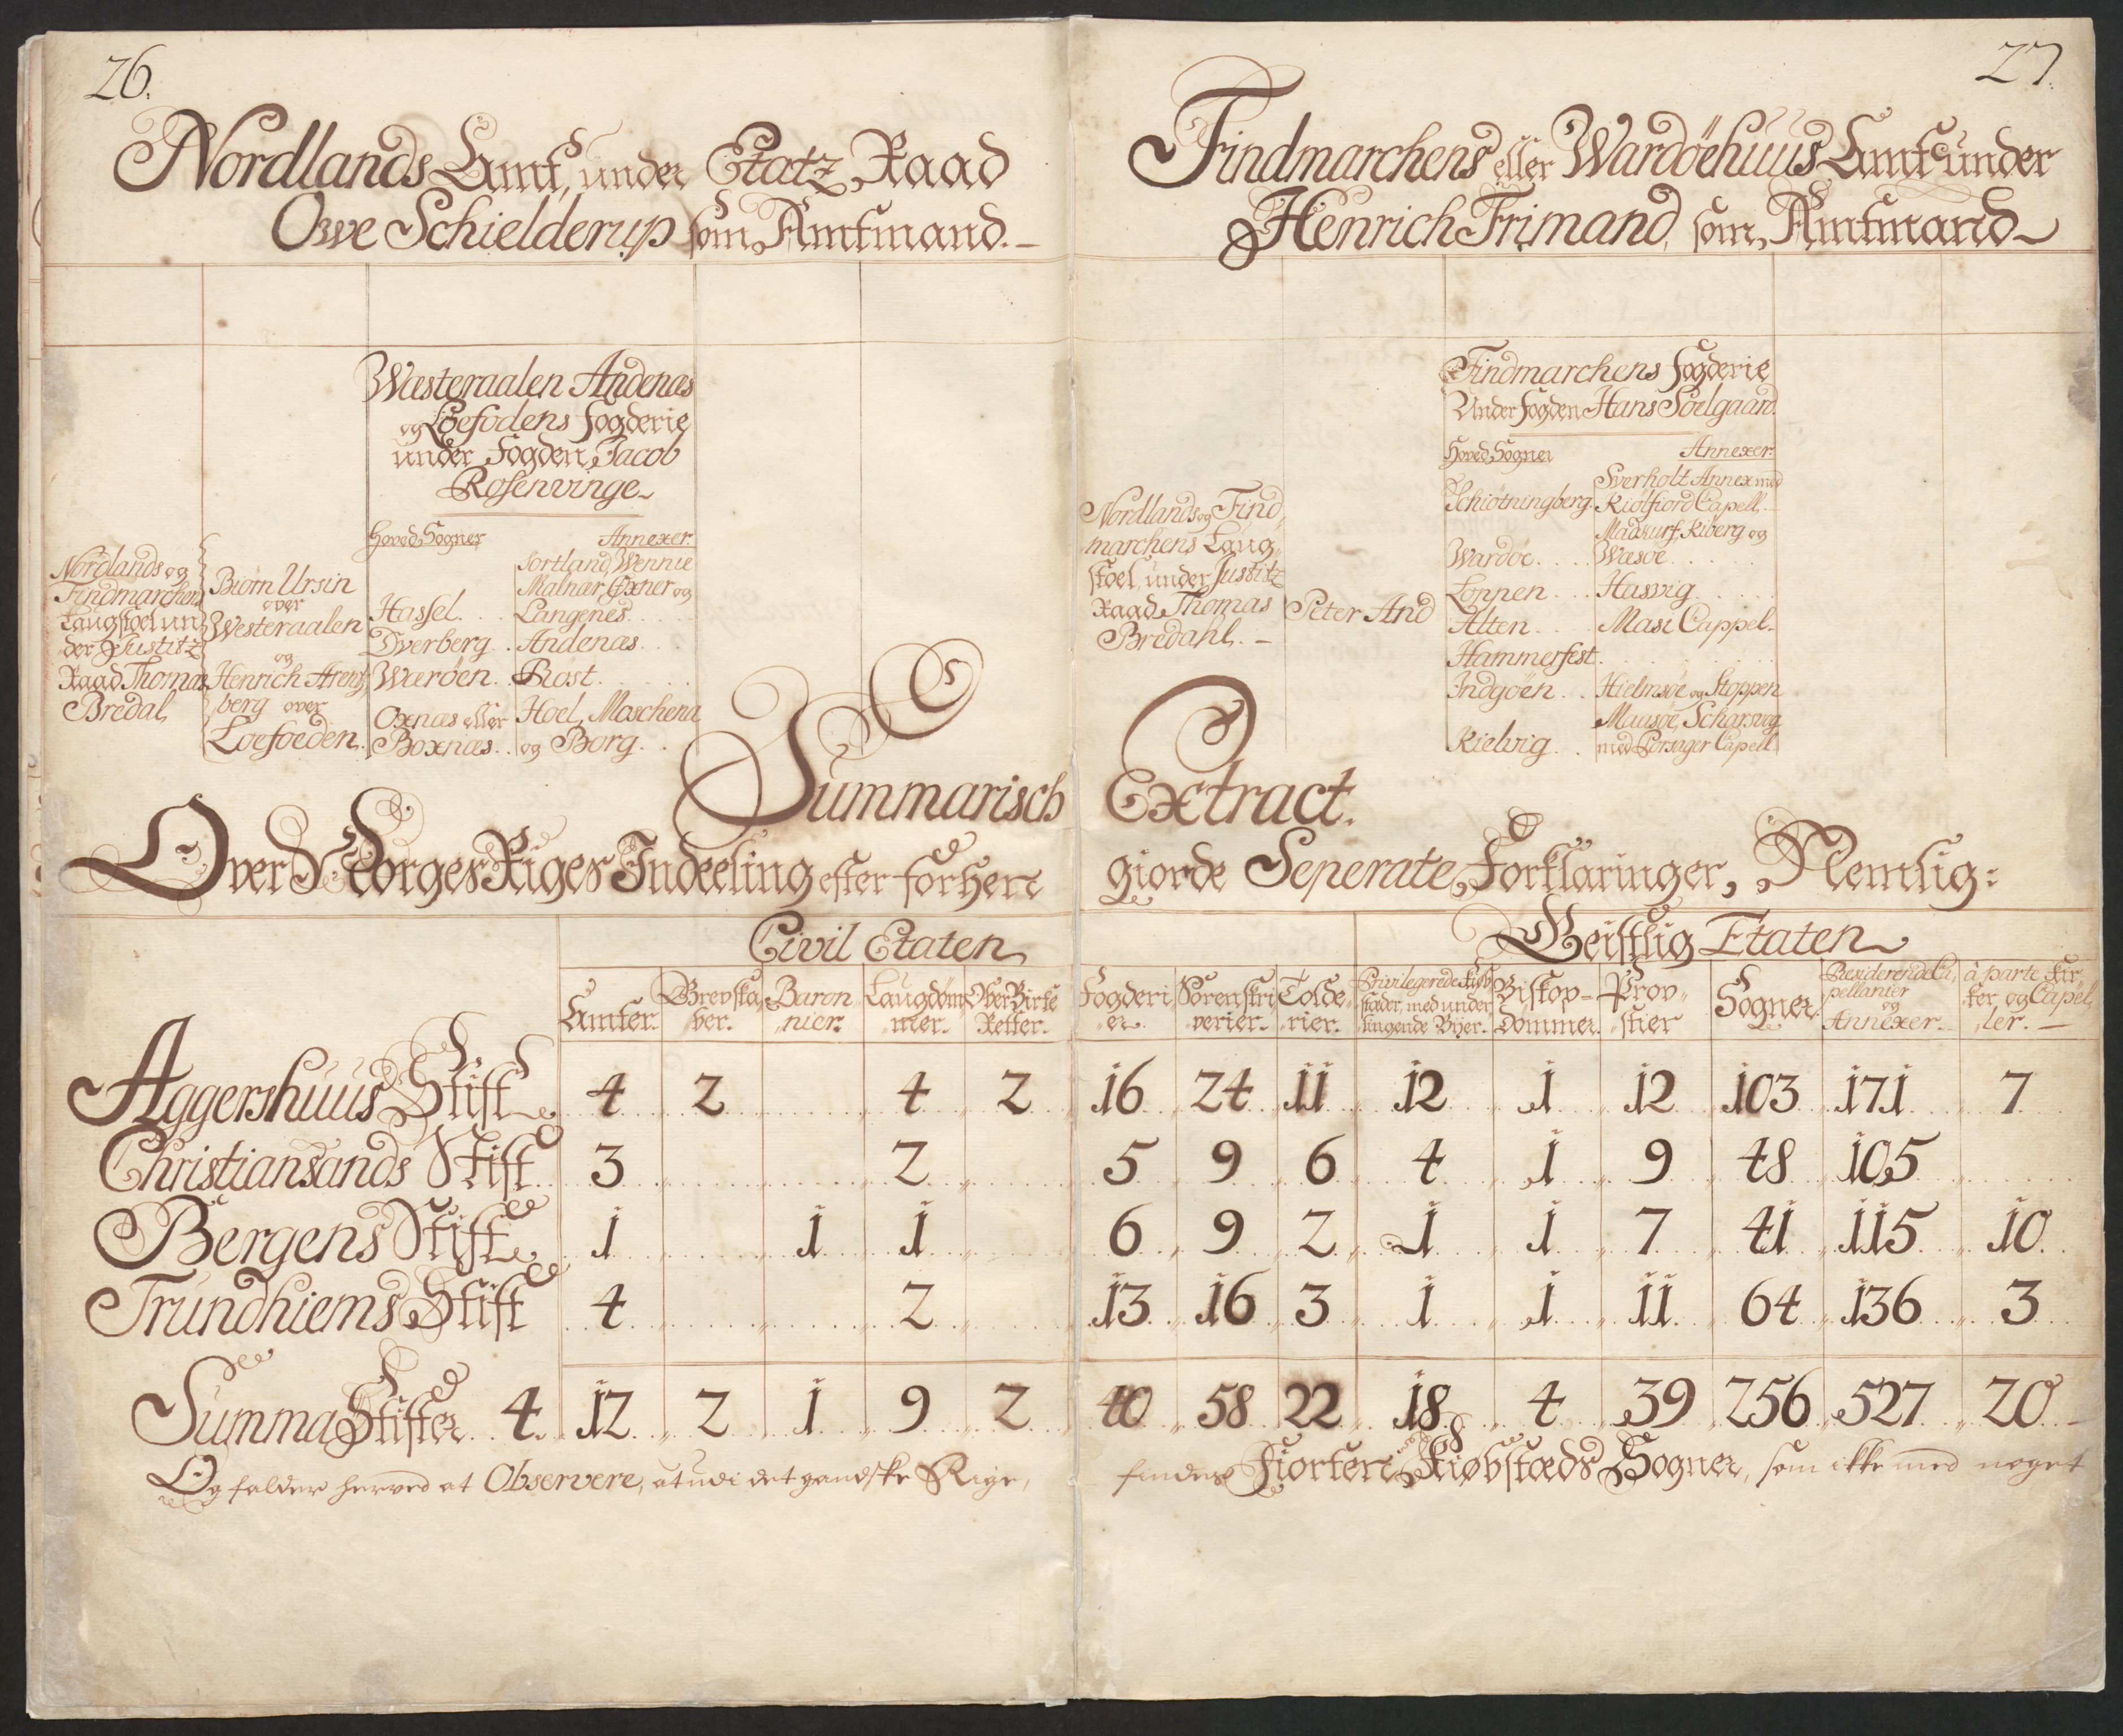 26.
Nordlands Amt, under Etatz Raad
Owe Schielderup som Amtmand.
Westeraalen Andenæs
og Loefodens Fogderie
under Fogden Jacob
Rosenvinge
Hoved Sogner Annexer.
Nordlands og
Findmarchens
Laugstoel un
der Justitz
Raad Thomas
Bredal
Biørn Ursin
over
Westeraalen
og
Henrich Arent,
berg over
Loefoeden.
Sortland, Wennie
Malnær, Oxner og
Hassel... Langenes.
Dverberg.. Andenæs...
Wærøen.. Rost......
Oxnæs eller Hoel, Moschena
Boxnæs.. og Borg..
27.
Findmarchens eller Wardøehuus Amt under
Henrich Trimand, som Amtmand
Findmarchens Fogderie
Under Fogden Hans Soelgaard
Hoved Sogner Annexer.
Nordlands og Find,
marchens Laug,
stoel, under Justitz
Raad Thomas
Bredahl. –
Peter And
Sverholt Annex med
Schiøtningberg. Kiølfiord Capell.
Madkurf, Kiberg og
Wardøe.... Wæsøe......
Loppen... Hasvig......
Alten.... Masi Cappel.
Hammerfest.........
Indgøen.. Hielmsøe og Stoppen
Mausøe, Scharsvog
Kielvig... med Porsager Capell.
Summarisch Extract.
Over Norges Riges Indeeling efter forhen giorde Seperate Forklaringer, Nemlig:
Civil Etaten Geistlig Etaten
Amter. Grevska,,ver. Baron,,nier. Laugdøm,,mer. Over Birke Retter. Fogderi,,er. Sorenskri,,verier. Tolde,,rier. Privilegerede Kiøb,,stæder, med under liggende Byer. Biskop=dømmer. Prov,,stier Sogner. Residerende Ca,,pellanier og Annexer. à parte Kir,,ker og Capel,,ler.
Aggershuus Stift 4 2 4 2 16 24 11 12 1 12 103 171 7
Christiansands Stift 3 2 5 9 6 4 1 9 48 105
Bergens Stift 1 1 1 6 9 2 1 1 7 41 115 10
Trundhiems Stift 4 2 13 16 3 1 1 11 64 136 3
Summa Stifter.. 4. 12 2 1 9 2 40 58 22 18 4 39 256 527 20
Og falder herved at Observere, at udi det gandske Rige, findes Fiorten Kiøbstæds Sogner, som ikke med noget